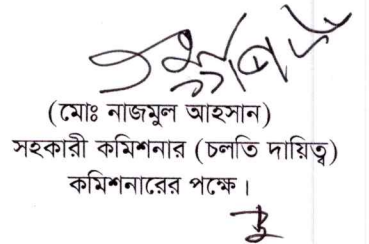 (মোঃ নাজমুল আহসান)
সহকারী কমিশনার (চলতি দায়িত্ব)
কমিশনারের পক্ষে।